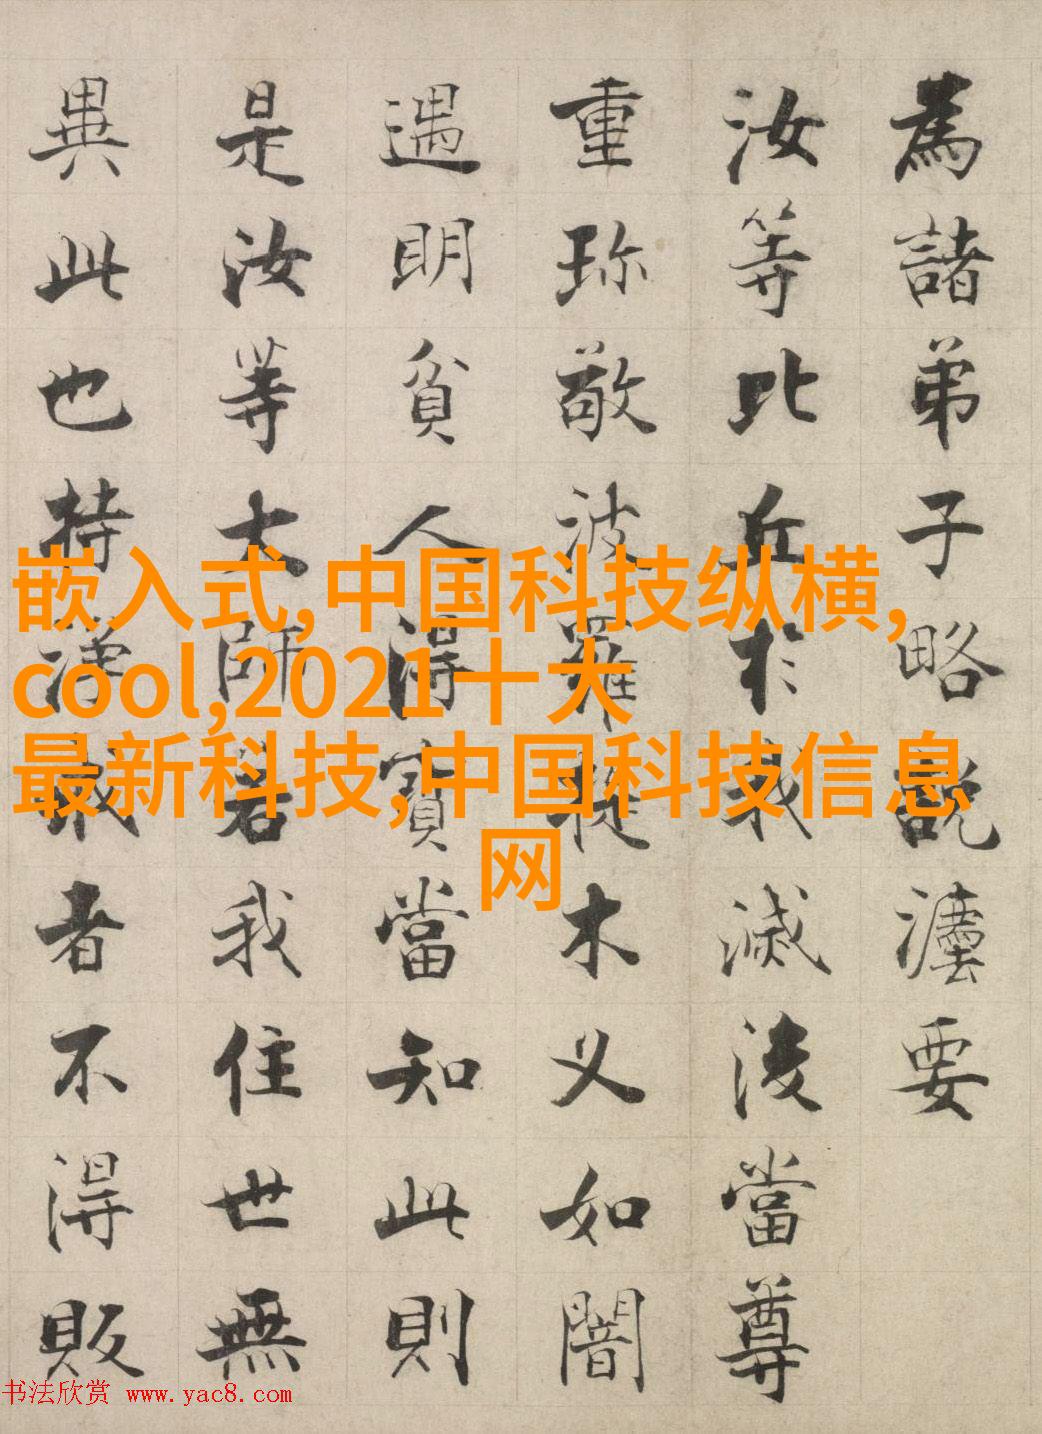 為諸弟子略說法要
汝等比丘於我滅後當尊
重珍敬波羅提木叉如闇
遇明貧人得寶當知此則
是汝等大師若我住世無
異此也持淨戒者不得販
嵌入式,中国科技纵横,
cool,2021十大
最新科技,中国科技信息
网
书法欣赏 www.yac8.com